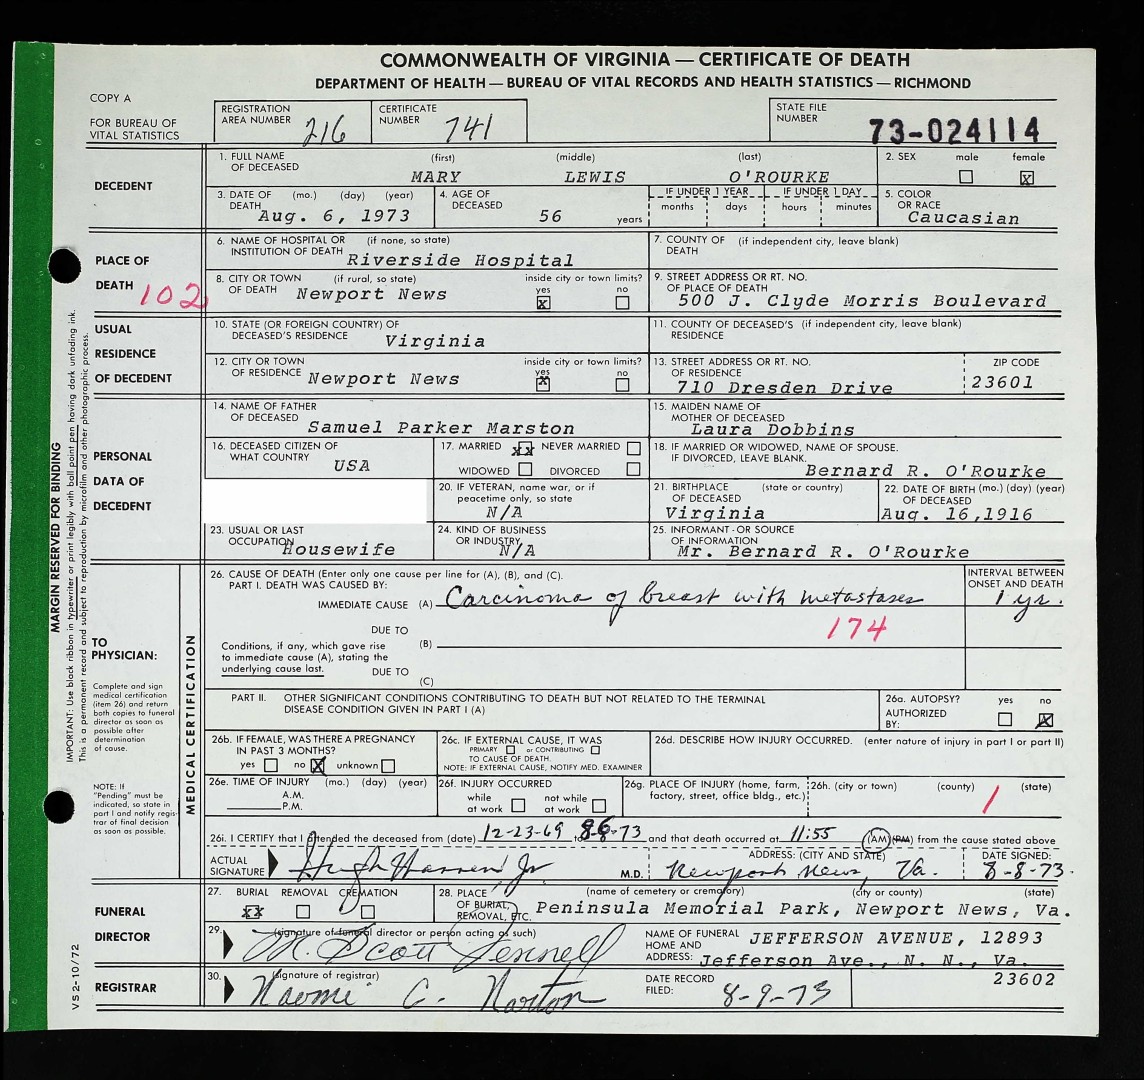 COMMONWEALTH OF VIRGINIA — CERTIFICATE OF DEATH
DEPARTMENT OF HEALTH — BUREAU OF VITAL RECORDS AND HEALTH STATISTICS — RICHMOND
COPY A
FOR BUREAU OF VITAL STATISTICS
REGISTRATION AREA NUMBER 216
CERTIFICATE NUMBER 741
STATE FILE NUMBER 73-024114
DECEDENT
1. FULL NAME OF DECEASED (first) MARY (middle) LEWIS (last) O'ROURKE
2. SEX male ☐ female ☒
3. DATE OF DEATH (mo.) (day) (year) Aug. 6, 1973
4. AGE OF DECEASED 56 years
IF UNDER 1 YEAR months days
IF UNDER 1 DAY hours minutes
5. COLOR OR RACE Caucasian
PLACE OF DEATH 102
6. NAME OF HOSPITAL OR INSTITUTION OF DEATH (if none, so state) Riverside Hospital
7. COUNTY OF DEATH (if independent city, leave blank)
8. CITY OR TOWN OF DEATH (if rural, so state) Newport News
inside city or town limits? yes ☒ no ☐
9. STREET ADDRESS OR RT. NO. OF PLACE OF DEATH 500 J. Clyde Morris Boulevard
USUAL RESIDENCE OF DECEDENT
10. STATE (OR FOREIGN COUNTRY) OF DECEASED'S RESIDENCE Virginia
11. COUNTY OF DECEASED'S RESIDENCE (if independent city, leave blank)
12. CITY OR TOWN OF RESIDENCE Newport News
inside city or town limits? yes ☒ no ☐
13. STREET ADDRESS OR RT. NO. OF RESIDENCE 710 Dresden Drive
ZIP CODE 23601
PERSONAL DATA OF DECEDENT
14. NAME OF FATHER OF DECEASED Samuel Parker Marston
15. MAIDEN NAME OF MOTHER OF DECEASED Laura Dobbins
16. DECEASED CITIZEN OF WHAT COUNTRY USA
17. MARRIED xx NEVER MARRIED ☐
WIDOWED ☐ DIVORCED ☐
18. IF MARRIED OR WIDOWED, NAME OF SPOUSE. IF DIVORCED, LEAVE BLANK. Bernard R. O'Rourke
20. IF VETERAN, name war, or if peacetime only, so state N/A
21. BIRTHPLACE OF DECEASED (state or country) Virginia
22. DATE OF BIRTH (mo.) (day) (year) OF DECEASED Aug. 16,1916
23. USUAL OR LAST OCCUPATION Housewife
24. KIND OF BUSINESS OR INDUSTRY N/A
25. INFORMANT - OR SOURCE OF INFORMATION Mr. Bernard R. O'Rourke
MARGIN RESERVED FOR BINDING
IMPORTANT: Use black ribbon in typewriter or print legibly with ball point pen having dark unfading ink.
This is a permanent record and subject to reproduction by microfilm and other photographic process.
TO PHYSICIAN:
Complete and sign medical certification (item 26) and return both copies to funeral director as soon as possible after determination of cause.
NOTE: If "Pending" must be indicated, so state in part I and notify registrar of final decision as soon as possible.
MEDICAL CERTIFICATION
26. CAUSE OF DEATH (Enter only one cause per line for (A), (B), and (C).
PART I. DEATH WAS CAUSED BY:
INTERVAL BETWEEN ONSET AND DEATH
IMMEDIATE CAUSE (A) Carcinoma of breast with metastases 1 yr.
174
DUE TO (B)
Conditions, if any, which gave rise to immediate cause (A), stating the underlying cause last.
DUE TO (C)
PART II. OTHER SIGNIFICANT CONDITIONS CONTRIBUTING TO DEATH BUT NOT RELATED TO THE TERMINAL DISEASE CONDITION GIVEN IN PART I (A)
26a. AUTOPSY? AUTHORIZED BY: yes ☐ no ☒
26b. IF FEMALE, WAS THERE A PREGNANCY IN PAST 3 MONTHS? yes ☐ no ☒ unknown ☐
26c. IF EXTERNAL CAUSE, IT WAS PRIMARY ☐ or CONTRIBUTING ☐ TO CAUSE OF DEATH. NOTE: IF EXTERNAL CAUSE, NOTIFY MED. EXAMINER
26d. DESCRIBE HOW INJURY OCCURRED. (enter nature of injury in part I or part II)
26e. TIME OF INJURY (mo.) (day) (year) A.M. P.M.
26f. INJURY OCCURRED while at work ☐ not while at work ☐
26g. PLACE OF INJURY (home, farm, factory, street, office bldg., etc.)
26h. (city or town) (county) (state)
26i. I CERTIFY that I attended the deceased from (date) 12-23-69 to 8-6-73 and that death occurred at 11:55 (AM) (PM) from the cause stated above
ACTUAL SIGNATURE Hugh Warren Jr M.D.
ADDRESS: (CITY AND STATE) Newport News, Va.
DATE SIGNED: 8-8-73
FUNERAL DIRECTOR
27. BURIAL xx REMOVAL ☐ CREMATION ☐
28. PLACE OF BURIAL, REMOVAL, ETC. (name of cemetery or crematory) (city or county) (state) Peninsula Memorial Park, Newport News, Va.
29. (signature of funeral director or person acting as such) M. Scott
NAME OF FUNERAL HOME AND ADDRESS: JEFFERSON AVENUE, 12893
Jefferson Ave., N. N., Va.
23602
REGISTRAR
30. (signature of registrar) Naomi C. Norton
DATE RECORD FILED: 8-9-73
VS 2-10/72